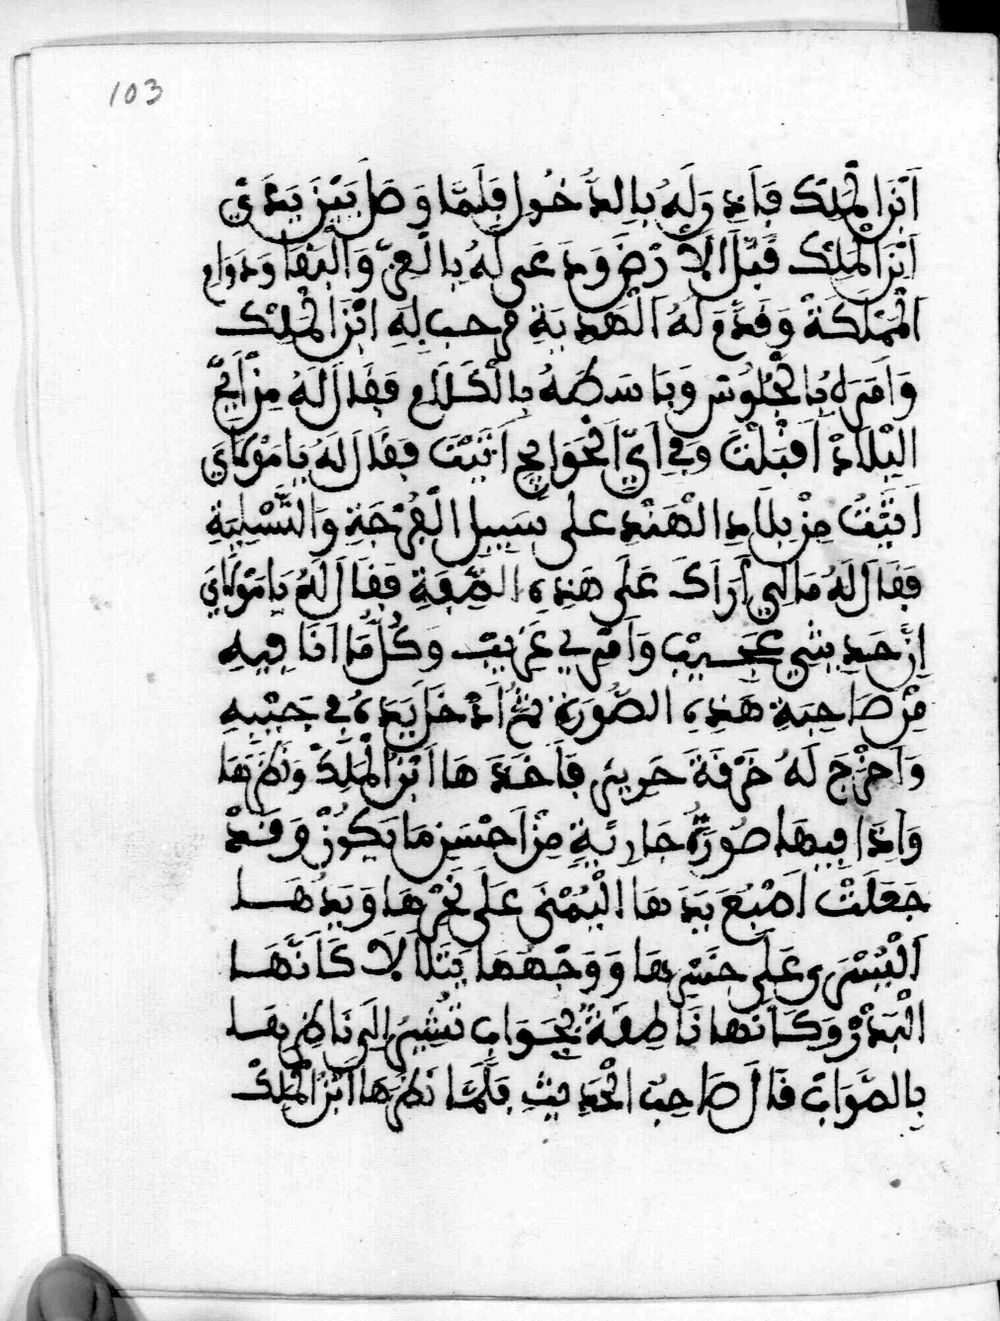 103
اَبْنَ الْمَلِكْ فَأَذِنَ لَهُ بِالدُّخُولِ فَلَمَّا وَصَلَ بَيْنَ يَدَيْ
اَبْنَ الْمَلِكْ قَبَّلَ الْاَرْضَ وَدَعَى لَهُ بِالْعِزّ وَالْبَقَا وَدَوَامِ
الْمَمْلَكَةْ وَقَدَّمَ لَهُ الْهَدِيَةِ فرحب لِهِ ابْنَ الْمَلِكْ
وَاَمَرَهُ بِالْجُلُوسْ وَبَاسَطَهُ بِالْكَلَامِ فَقَالَ لَهُ مِنْ اَيِّ
الْبِلَادْ اَقْبَلْتَ وَفِي اَيِّ الْحَوَايِجِ اَتَيْتَ فَقَالَ لَهُ يَا مَوْلَايَ
اَتَيْتُ مِنْ بِلَادِ الْهَنْدِ عَلَى سَبِيلِ الْفُرْجَةِ وَالتَّسْلِيَةِ
فَقَالَ لَهُ مَا لِي اَرَاكَ عَلَى هَذِهِ الصِّفَةِ فَقَالَ لَهُ يَا مَوْلَايَ
اِنَّ حَدِيثِي عَجِيبْ وَاَمْرِي غَرِيبْ وَكُلُّ مَا اَنَا فِيهِ
مِنْ صَاحِبَةِ هَذِهِ الصُّورَةِ ثُمَّ اَدْخَلَ يَدَهُ فِي جَيْبِهِ
وَاَخْرَجَ لَهُ خَرْقَةَ حَرِيرْ فَاَخَدَهَا ابْنَ الْمَلِكْ وَنَظَرَهَا
وَاِذَا فِيهَا صُورَةُ جَارِيَةٍ مِنْ اَحْسَنِ مَا يَكُونْ وَقَدْ
جَعَلَتْ اَصْبُعَ يَدِهَا الْيُمْنَى عَلَى نَحْرِهَا وَيَدُهَا
الْيُسْرَى عَلَى خَسْرِهَا وَوَجْهَهَا يَتَلَالَا كَاَنَّهَا
الْبَدْرْ وَكَاَنَّهَا نَاطِقَةً بِجَوَابِ تُشِيرُ اِلَى نَاظِرِهَا
بِالصَّوَابْ قَالَ صَاحِبُ الْحَدِيثِ فَلَمَّا نَظَرَهَا اَبْنَ الْمَلِكْ